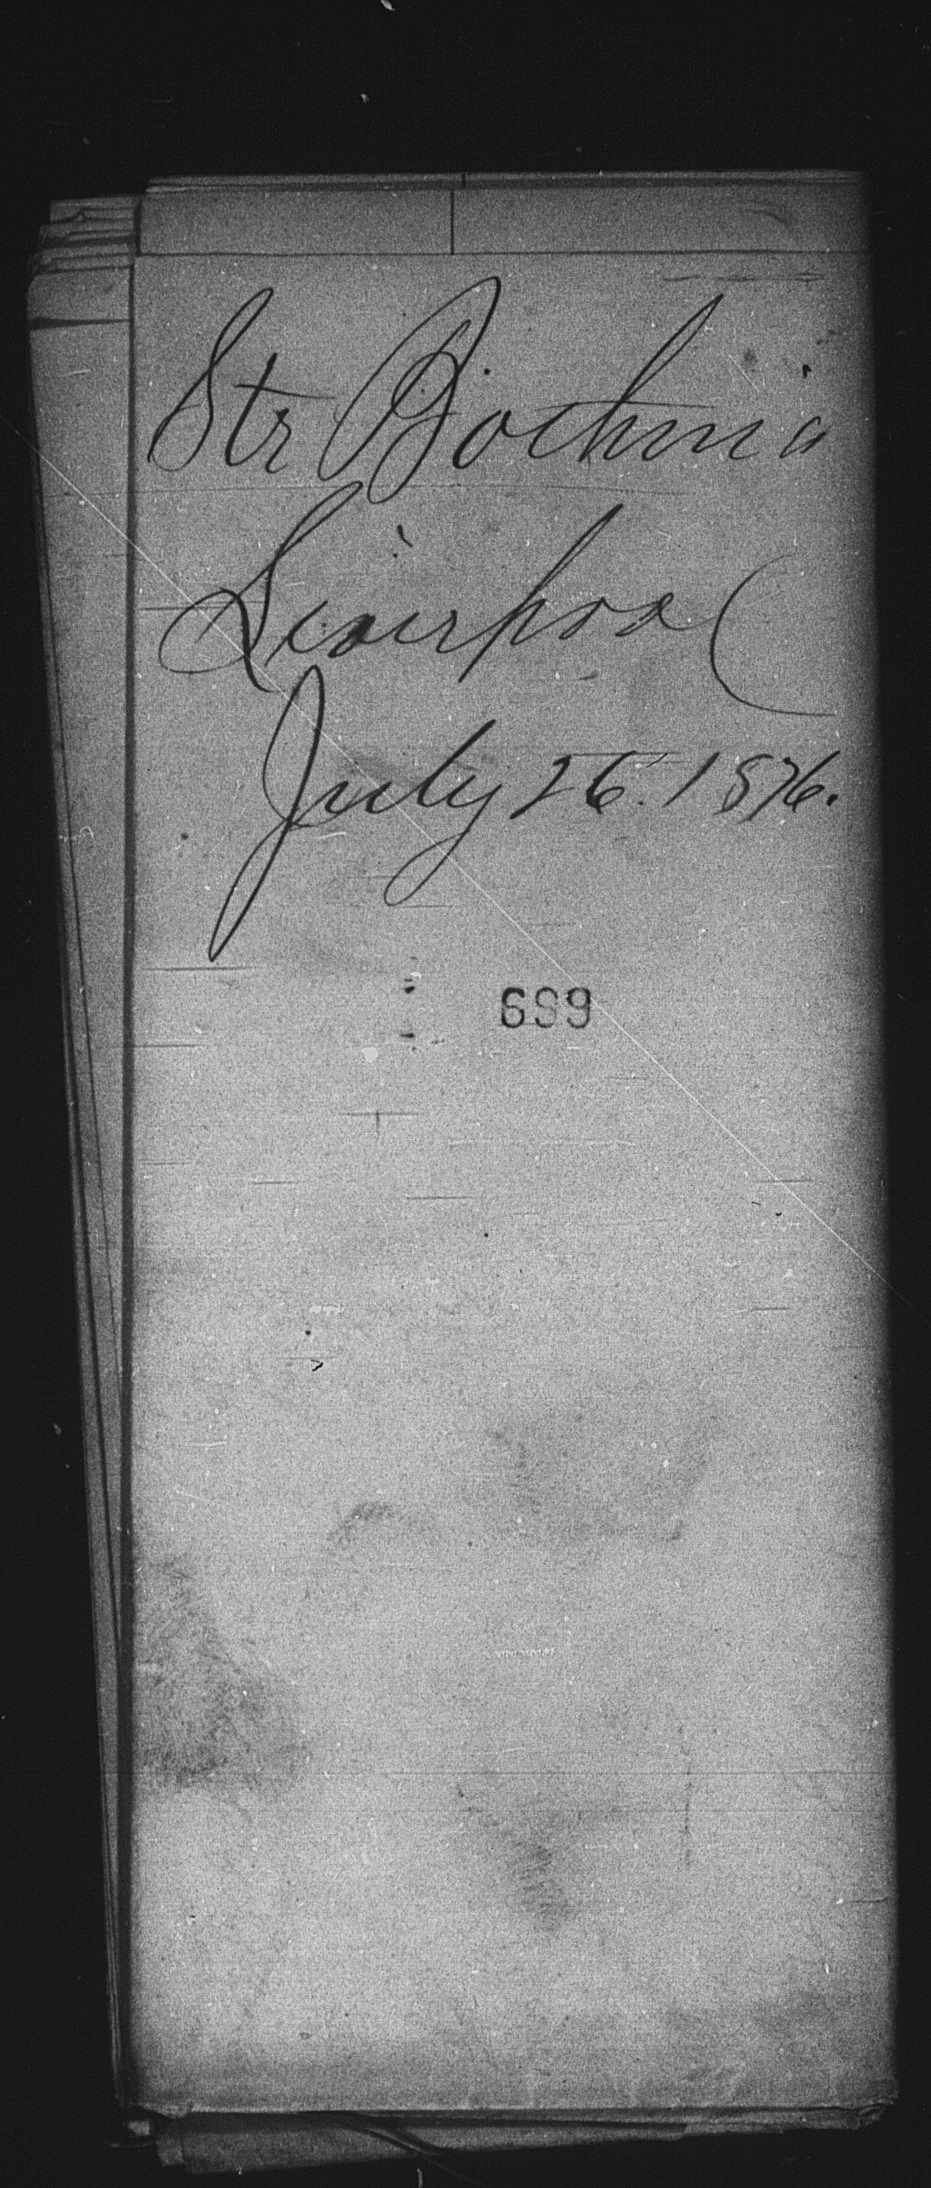 Str Bothnia
Liverpool
July 26. 1876.
699